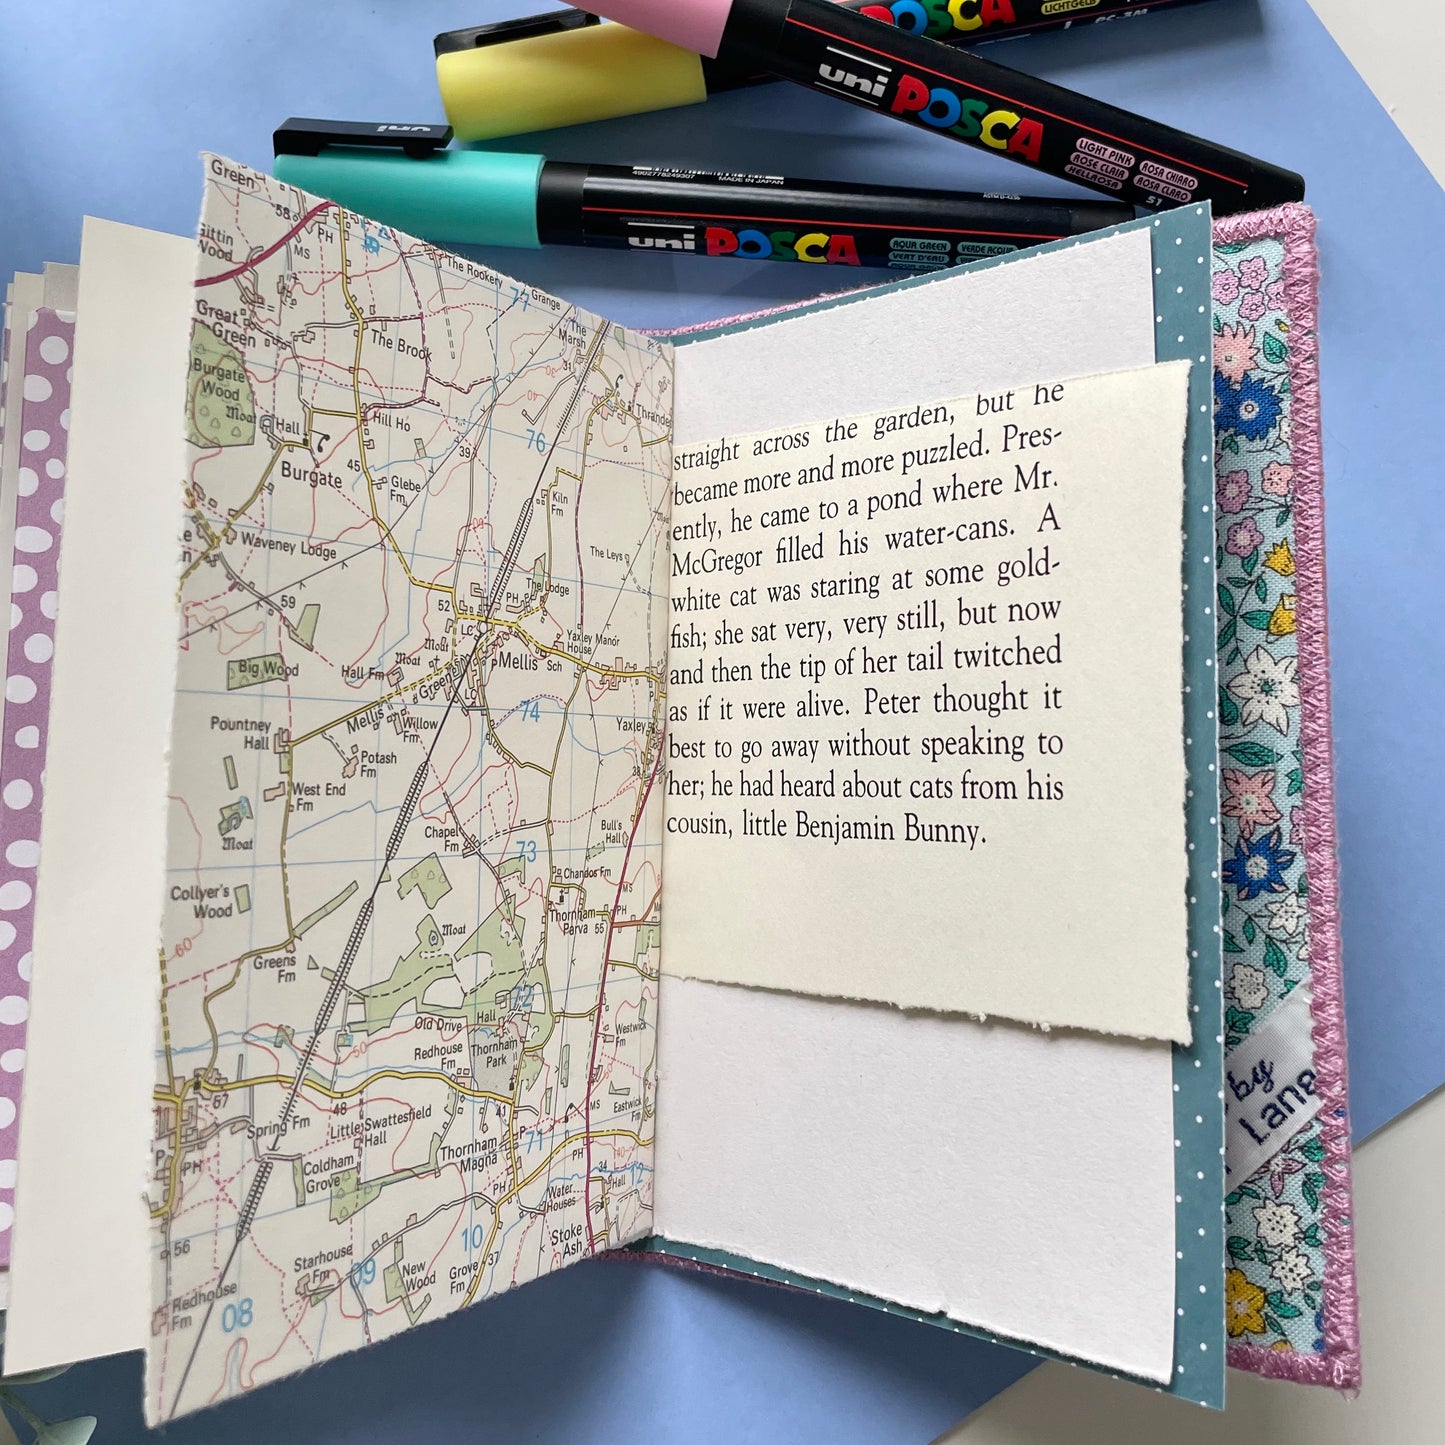 uni POSCA
LICHTGELB
PC-5M
LIGHT PINK
ROSA CHIARO
ROSE CLAIR
ROSA CLARO
HELLROSA
51
uni
4902778249307
MADE IN JAPAN
uni POSCA
AQUA GREEN
VERDE ACQUA
VERT D'EAU
Green
58
PH
MS
Wood
The Rookery
77
Grange
The
Marsh
31
Great
Green
The Brook
Burgate
Wood
Moat
Hall
Hill Ho
76
39
40
Burgate
45
Glebe
Fm
Kiln
Fm
60
Waveney Lodge
The Leys
The Lodge
PH
59
52
LC
Yaxley Manor
House
Big Wood
Hall Fm
Moat
Moat
Green
Mellis
Sch
LC
74
Mellis
Willow
Fm
Yaxley
Pountney
Hall
Potash
Fm
38
West End
Fm
Moat
Chapel
Fm
73
Bull's
Hall
Chandos Fm
MS
Collyer's
Wood
Thornham
Parva
55
PH
60
Moat
Greens
Fm
72
Old Drive
Hall
50
Redhouse
Fm
Thornham
Park
57
48
41
MS
Spring Fm
Little Swattesfield
Hall
Thornham
Magna
71
PH
PH
Coldham
Grove
PH
Water
Houses
34
Hall
12
56
10
Stoke
Ash
Starhouse
Fm
09
New
Wood
Grove
Fm
37
Redhouse
Fm
08
straight across the garden, but he
became more and more puzzled. Pres-
ently, he came to a pond where Mr.
McGregor filled his water-cans. A
white cat was staring at some gold-
fish; she sat very, very still, but now
and then the tip of her tail twitched
as if it were alive. Peter thought it
best to go away without speaking to
her; he had heard about cats from his
cousin, little Benjamin Bunny.
by
Lane